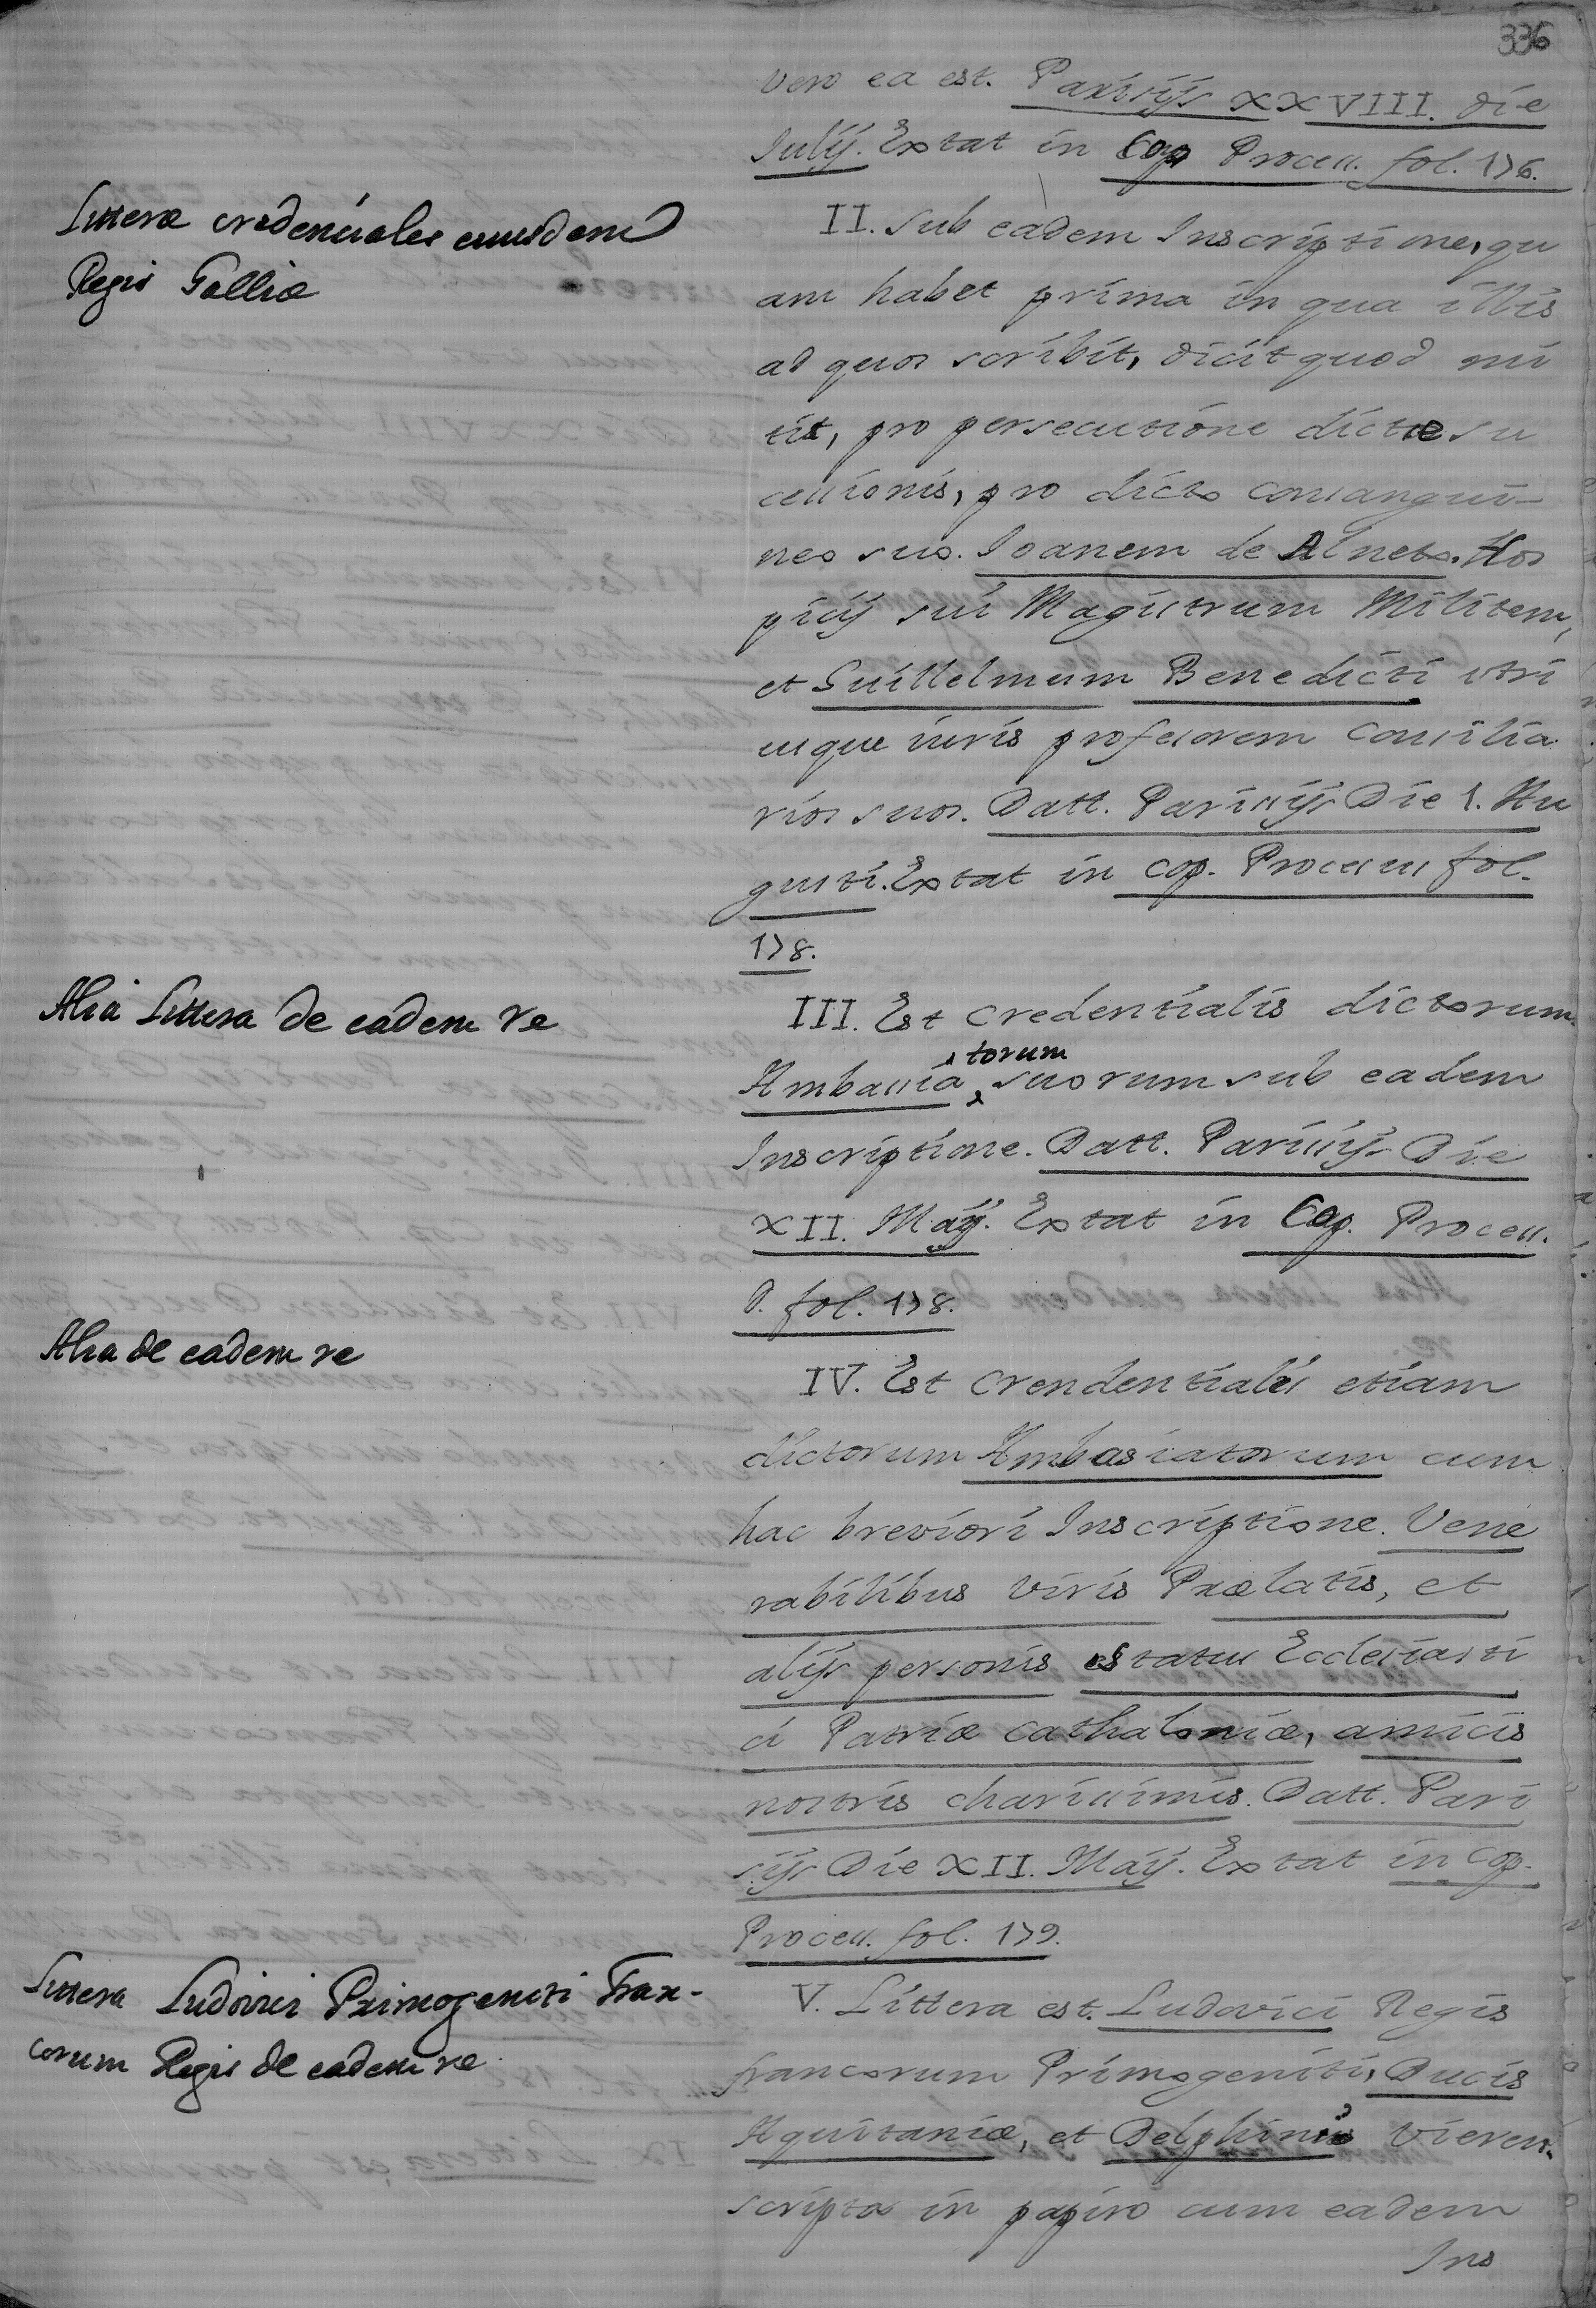 336
vero ea est. Parisijs XXVIII. die
Iulij. Extat in Cop Process. fol. 176.
Litteræ credentiales eiusdem
Regis Galliæ
II. sub eadem Inscriptione, qu
am habet prima in qua illis
ad quos scribit, dicit quod mi
tit, pro persecutione dictæ su
cessionis, pro dicto consangui-
neo suo. Ioanem de Alneto. Hos
picij sui Magistrum Militem,
et Guillelmum Benedicti utri
usque iuris professorem Consilia
rios suos. Datt. Parissijs Die 1. Au
gusti. Extat in Cop. Processus fol.
178.
Alia Littera de eadem re
III. Est credentialis dictorum
Ambassiatorum suorum sub eadem
Inscriptione. Datt. Parissijs Die
XII. Maij. Extat in Cop. Process.
d. fol. 178.
Alia de eadem re
IV. Est crendentialis etiam
dictorum Ambasiatorum cum
hac breviori Inscriptione. Vene
rabilibus viris Prælatis, et
alijs personis status Ecclesiasti
ci Patriæ Cathaloniæ, amicis
nostris charissimis. Datt. Pari
sijs Die XII. Maij. Extat in Cop.
Process. fol. 179.
Littera Ludovici Primogeniti Fran-
corum Regis de eadem re
V. Littera est. Ludovici Regis
francorum Primogeniti, Ducis
Aquitaniæ, et Delphini
scripta in papiro cum eadem
Ins